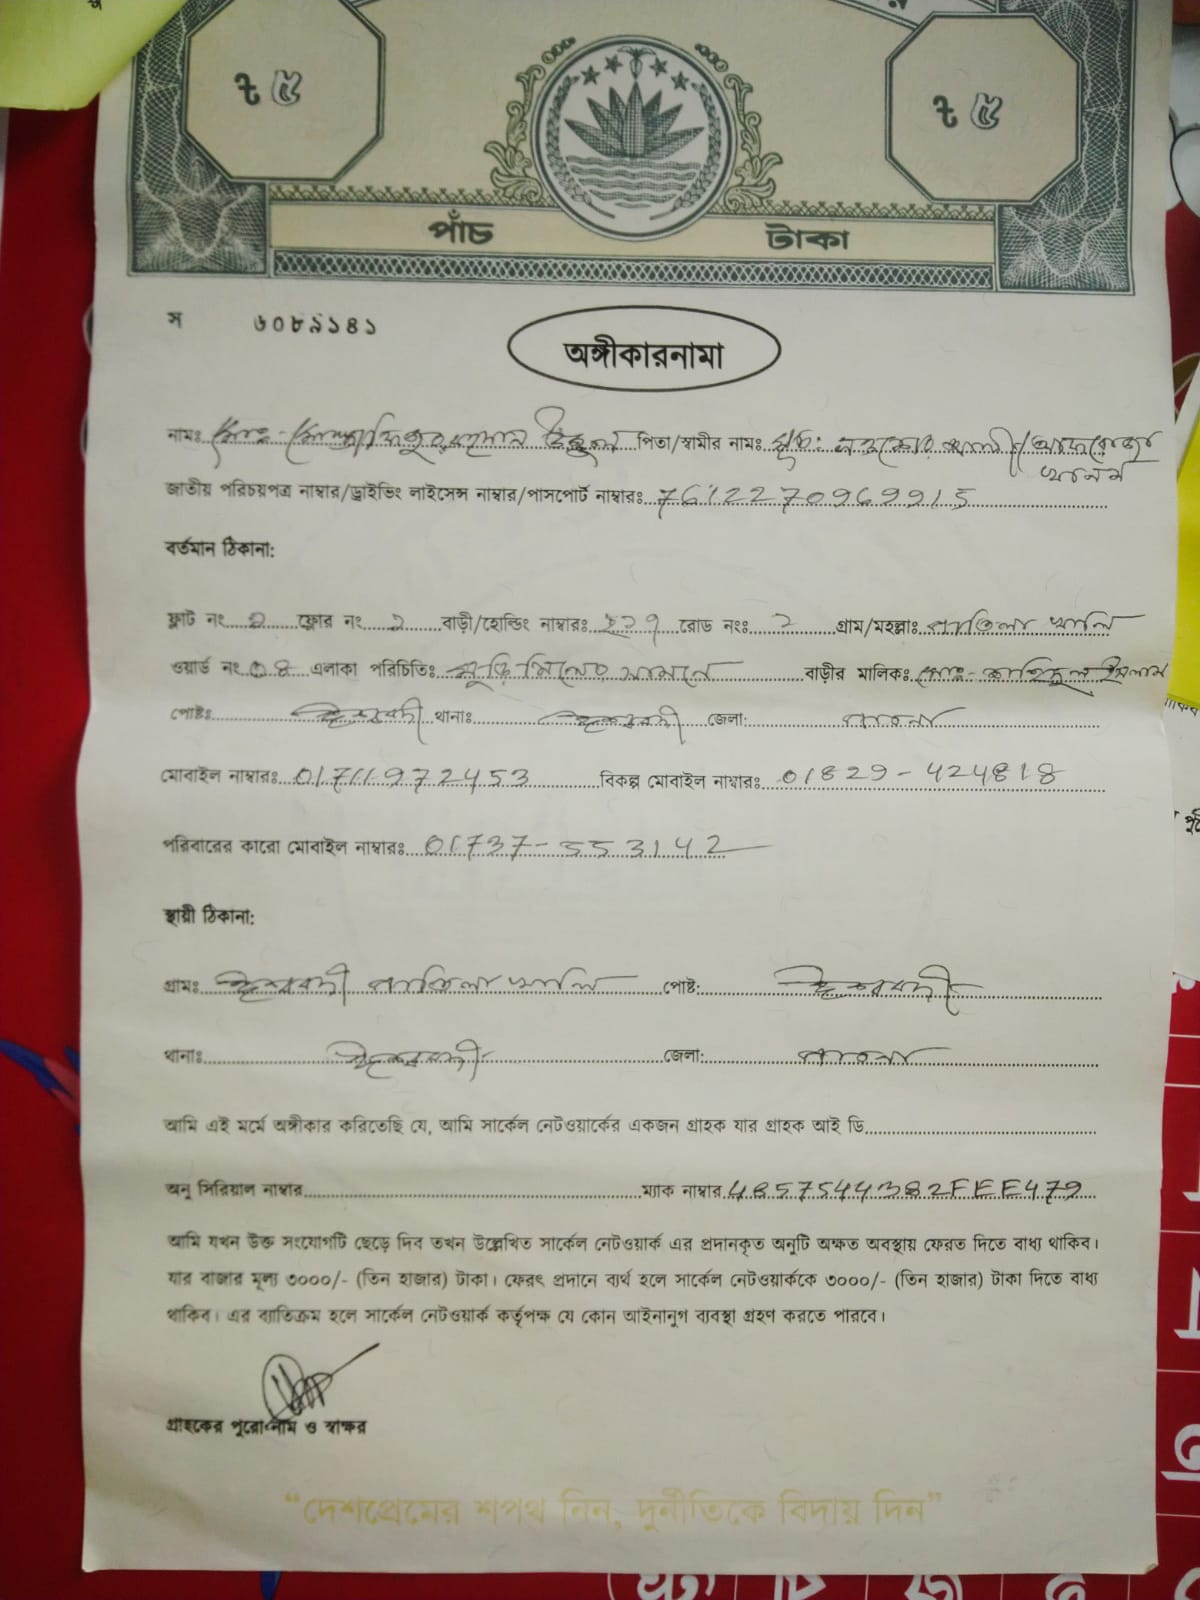 ৳ ৫
৳ ৫
পাঁচ টাকা
স ৬০৮৯১৪১
অঙ্গীকারনামা
নামঃ মোঃ মোস্তাফিজুর রহমান পিতা/স্বামীর নামঃ মৃত: আলী/আফরোজা
খানম
জাতীয় পরিচয়পত্র নাম্বার/ড্রাইভিং লাইসেন্স নাম্বার/পাসপোর্ট নাম্বারঃ 7612270969915
বর্তমান ঠিকানা:
ফ্লাট নং ফ্লোর নং বাড়ী/হোল্ডিং নাম্বারঃ রোড নংঃ 2 গ্রাম/মহল্লাঃ পাতিলা খালি
ওয়ার্ড নং 04 এলাকা পরিচিতিঃ মুড়ি মিলের সামনে বাড়ীর মালিকঃ মোঃ ইসলাম
পোষ্টঃ ঈশ্বরদী থানাঃ ঈশ্বরদী জেলা: পাবনা
মোবাইল নাম্বারঃ 01711972453 বিকল্প মোবাইল নাম্বারঃ 01829-424818
পরিবারের কারো মোবাইল নাম্বারঃ 01737-553142
স্থায়ী ঠিকানা:
গ্রামঃ ঈশ্বরদী পাতিলা খালি পোষ্ট: ঈশ্বরদী
থানাঃ ঈশ্বরদী জেলা: পাবনা
আমি এই মর্মে অঙ্গীকার করিতেছি যে, আমি সার্কেল নেটওয়ার্কের একজন গ্রাহক যার গ্রাহক আই ডি
অনু সিরিয়াল নাম্বার ম্যাক নাম্বার 48575444382FEE479
আমি যখন উক্ত সংযোগটি ছেড়ে দিব তখন উল্লেখিত সার্কেল নেটওয়ার্ক এর প্রদানকৃত অনুটি অক্ষত অবস্থায় ফেরত দিতে বাধ্য থাকিব।
যার বাজার মূল্য ৩০০০/- (তিন হাজার) টাকা। ফেরৎ প্রদানে ব্যর্থ হলে সার্কেল নেটওয়ার্ককে ৩০০০/- (তিন হাজার) টাকা দিতে বাধ্য
থাকিব। এর ব্যতিক্রম হলে সার্কেল নেটওয়ার্ক কর্তৃপক্ষ যে কোন আইনানুগ ব্যবস্থা গ্রহণ করতে পারবে।
গ্রাহকের পুরো নাম ও স্বাক্ষর
“দেশপ্রেমের শপথ নিন, দুর্নীতিকে বিদায় দিন”